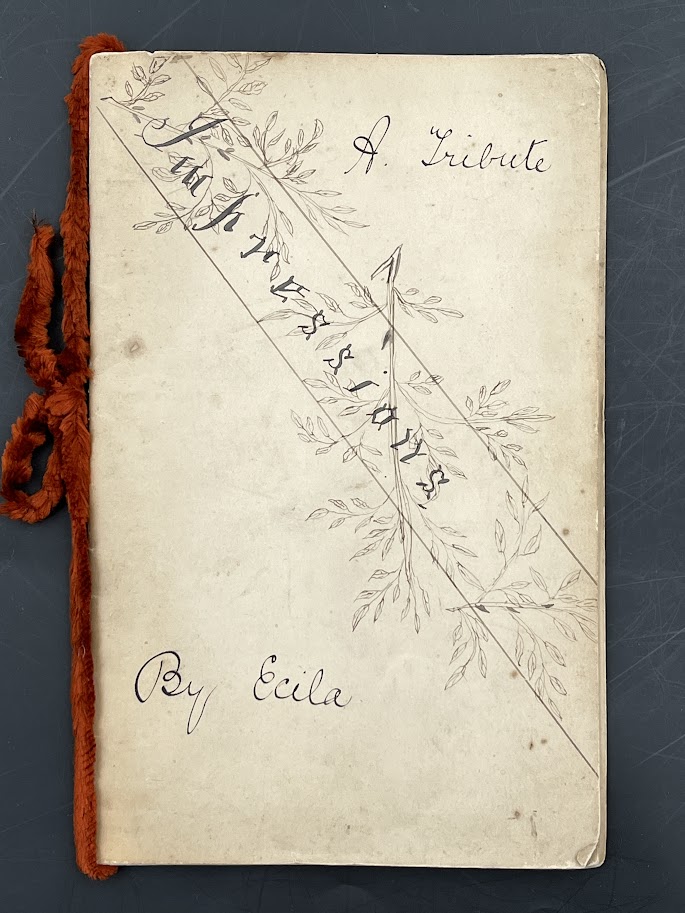 A. Tribute
Impressions
By Ecila